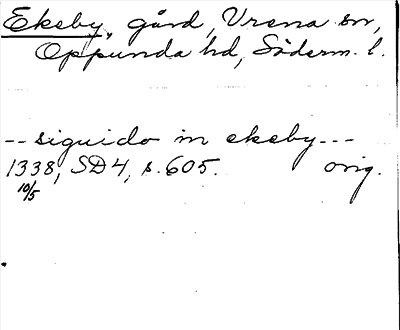 Ekeby, gård, Vrena sn,
Oppunda hd, Söderm. l.
-- siguido in ekeby ---
1338, SD4, s. 605. orig.
10/5